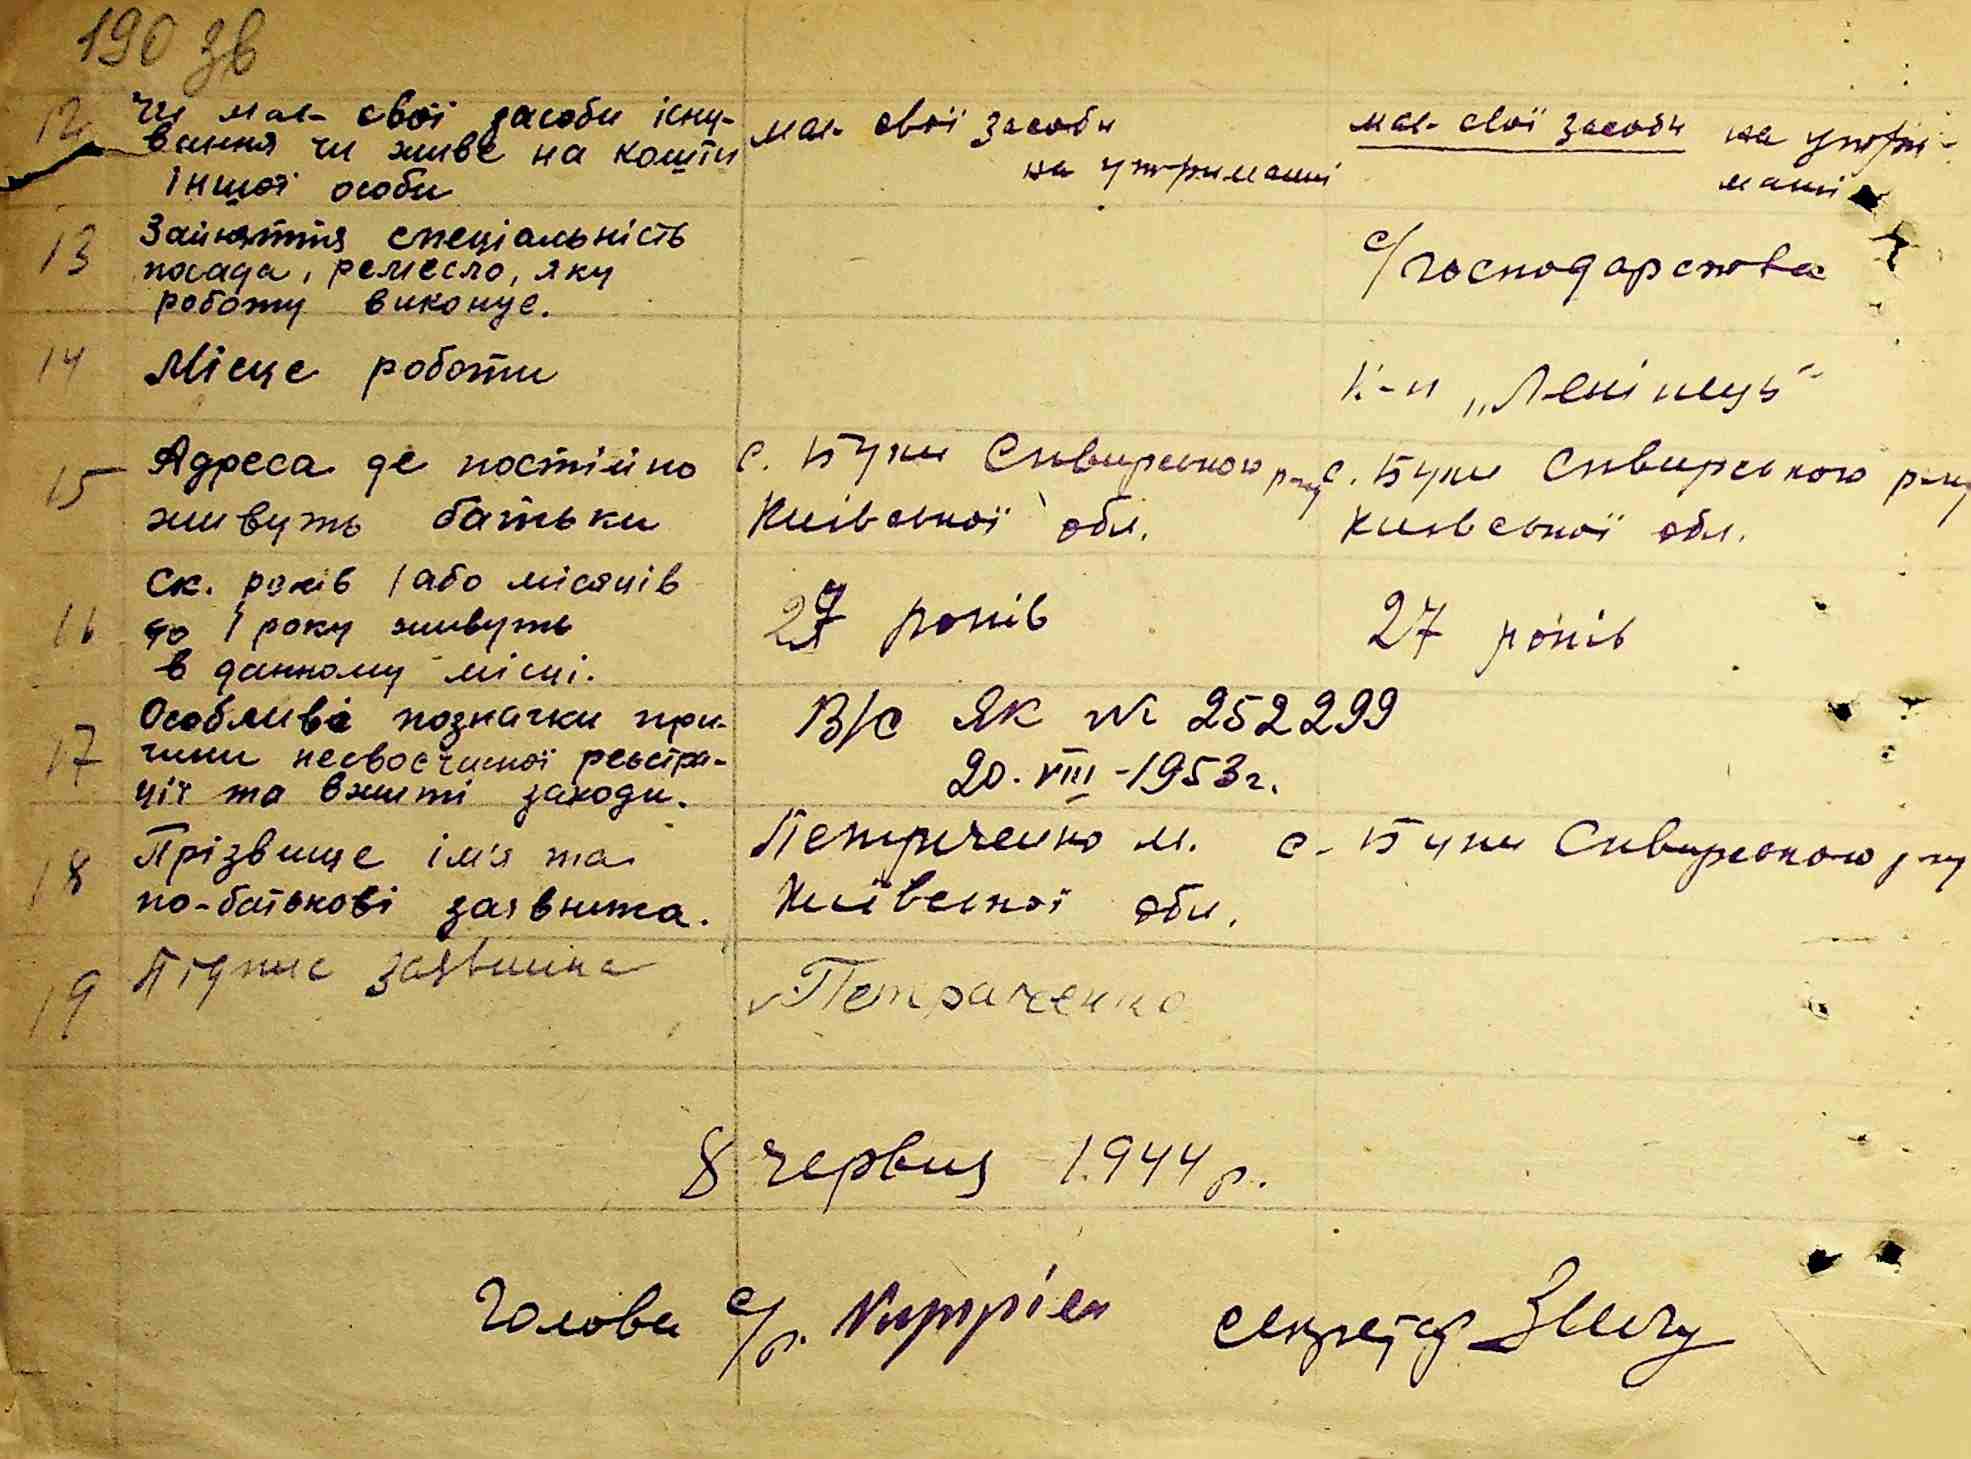 190 зв
12 Чи має свої засоби існу-
вання чи живе на кошти
іншої особи
має свої засоби
на утриманні
має свої засоби на утри-
манні
13 Зайняття спеціальність
посада, ремесло, яку
роботу виконує.
с/господарства
14 Місце роботи
к-п „Ленінець"
15 Адреса де постійно
живуть батьки
с. Буки Сквирського р-ну
Київської обл.
с. Буки Сквирського р-ну
Київської обл.
16 Ск. років /або місяців
до 1 року живуть
в данному місці.
27 років
27 років
17 Особливі позначки при-
чини несвоєчасної реєстра-
ції та вжиті заходи.
В/с ЯК № 252299
20.VIII-1953г.
18 Прізвище ім'я та
по-батькові заявника.
Петриченко М. с. Буки Сквирського р-ну
Київської обл.
19 Підпис заявника
Петраченко
8 червня 1944 р.
Голова с/р. секретар